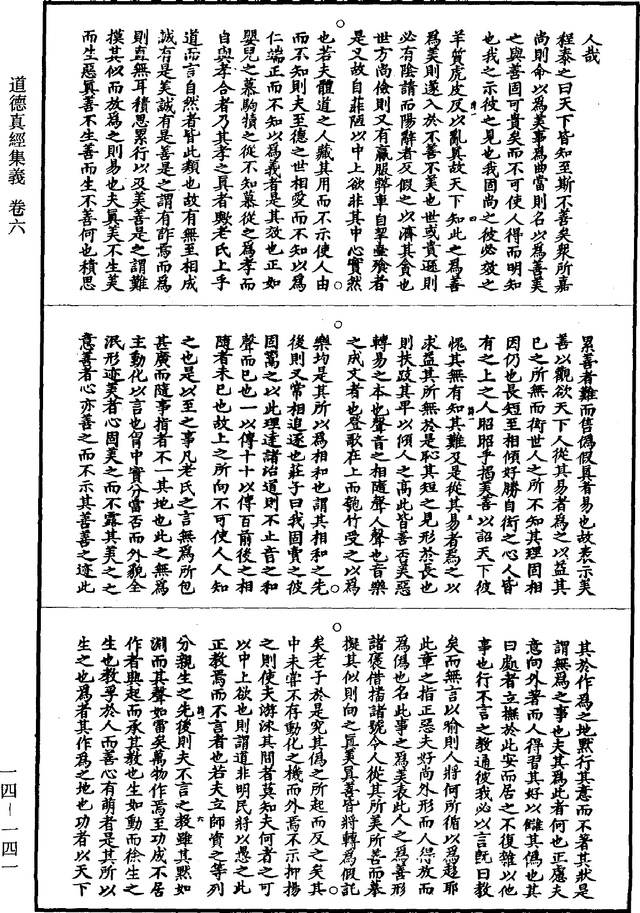 人哉
程泰之曰天下皆知至斯不善矣衆所嘉
尚則命以爲美事爲曲當則名以爲善美
之與善固可貴矣而不可使人得而明知
也我之示彼之見也我固尚之彼必效之
羊質虎皮反以亂眞故天下知此之爲善
爲美則遂入於不善不美也世或貴遜則
必有陰請而陽辭者反假之以濟其貪也
世方尚儉則又有羸服弊車自挈壷飱者
是又故自菲陋以中上欲非其中心實然
也若夫體道之人藏其用而不示使人由
而不知則夫至德之世相愛而不知以爲
仁端正而不知以爲義者是其效也正如
嬰兒之慕駒犢之從不知慕從之爲孝而
自與孝合者乃其孝之眞者歟老氏上乎
道而言自然者皆此類也故有無至相成
誠有是美誠有是善是之謂有詐焉而爲
則直無耳積思累行以及美善是之謂難
摸其似而放爲之則易也夫眞美不生美
而生惡眞善不生善而生不善何也積思
累善者難而售僞假眞者易也故表示美
善以觀欲天下人從其易者爲之以益其
已之所無而衒世人之所不知其理固相
因仍也長短至相傾好勝自衒之心人皆
有之上之人昭昭乎揭美善以詔天下彼
愧其無有知其難及是從其易者爲之以
求益其所無於是恥其短之見形於長也
則扶跂其卑以傾人之高此皆善否美惡
轉易之本也聲音之相隨聲人聲也音樂
之成文者也登歌在上而匏竹受之以爲
樂均是其所以爲相和也謂其相和之先
後則又常相追逐也莊子曰我固賣之彼
固鬻之以此理達諸治道則不止音之和
聲而已也一以傳十十以傳百前後之相
隨者未已也故上之所向不可使人人知
之也是以至之事凡老氏之言無爲所包
甚廣而隨事指者不一其地也此之無爲
主動化以言也胷中實分當否而外貌全
泯形迹美者心固美之而不露其美之之
意善者心亦善之而不示其善善之迹此
其於作爲之地默行其意而不著其狀是
謂無爲之事也夫其爲此者何也正慮夫
意向外著而人得習其好以讎其僞也其
曰處者立撫於此安而居之不復雜以他
事也行不言之教通彼我必以言旣曰教
矣而無言以喻則人將何所循以爲趨耶
此章之指正惡夫好尚外形而人得放而
爲僞也名此事之爲美表此人之爲善形
諸褒借揩諸號令人從其所美所善而摹
擬其似則向之眞美眞善皆將轉爲假託
矣老子於是究其僞之所起而反之矣其
中未嘗不存動化之機而外焉不示抑揚
之則使夫游泳其間者莫知夫何者之可
以中上欲也則謂道非明民將以愚之此
正教焉而不言者也若夫立師資之等列
分親生之先後則夫不言之教雖其默如
淵而其聲如雷矣萬物作焉至功成不居
作者興起而承其教也生如動而徐生之
生也教孚於人而善心有萌者是其所以
生之也爲者其作爲之地也功者以天下
道德真經集義 卷六
一四一一四一